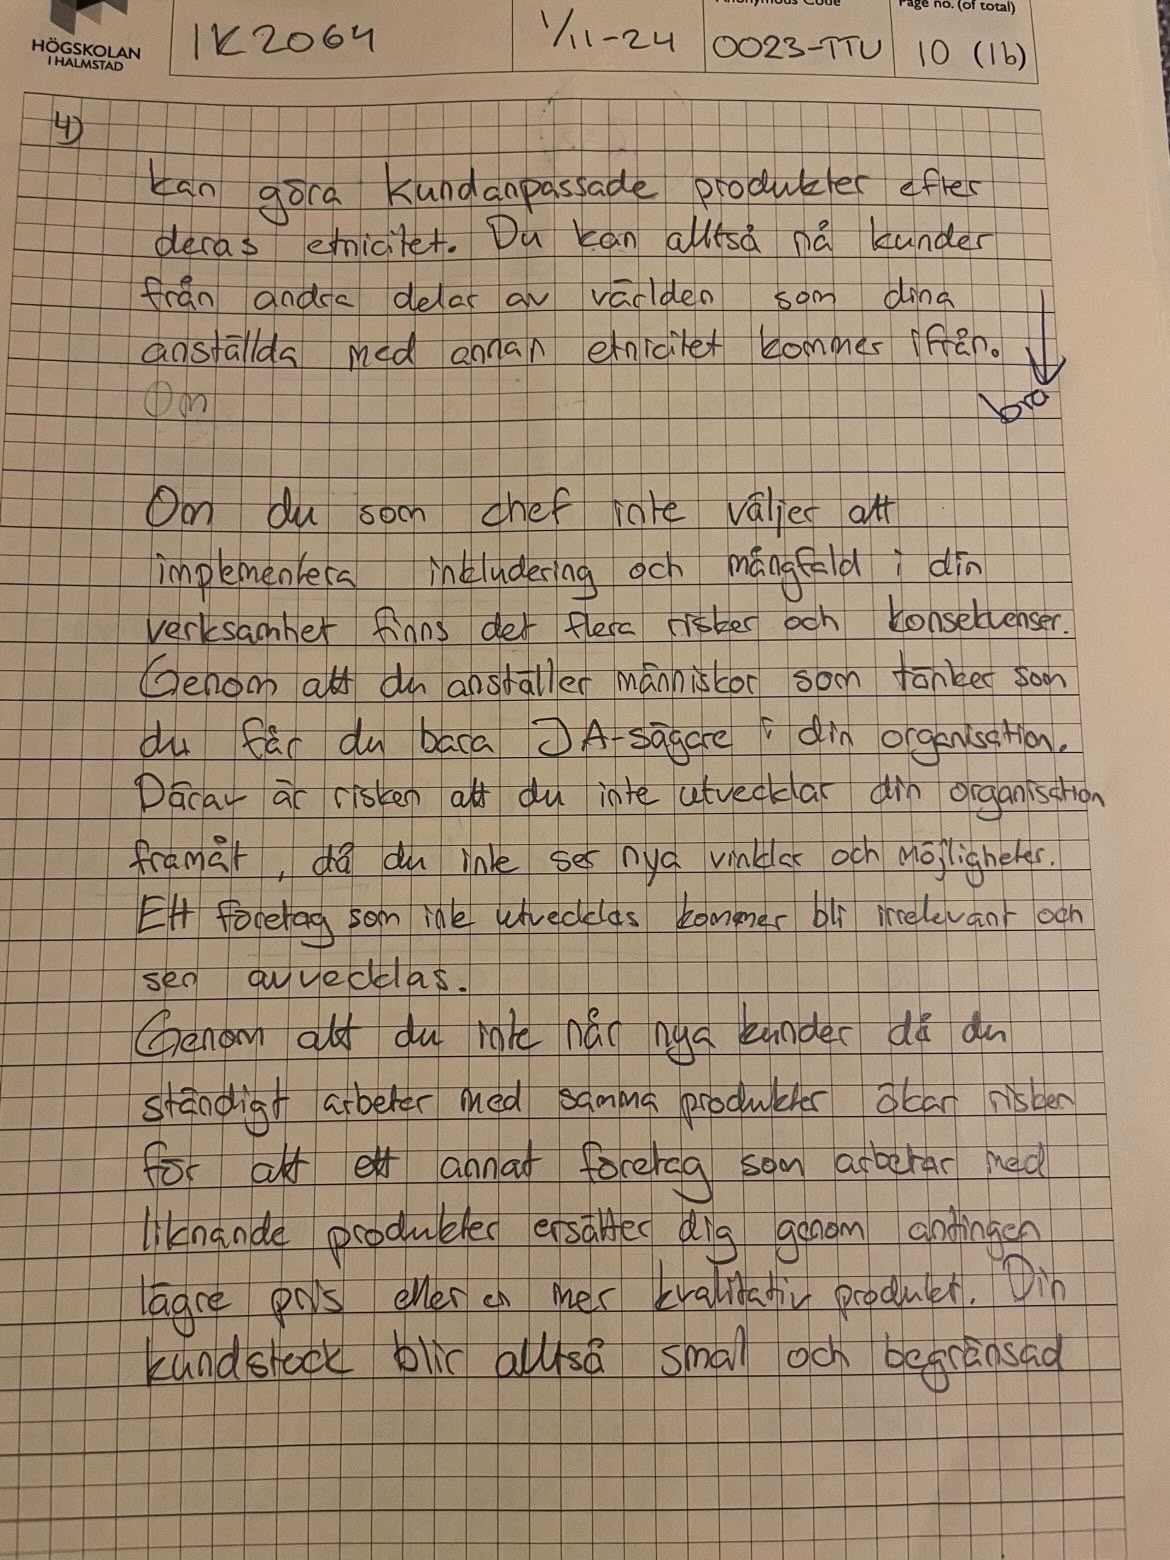 Page no. (of total)
HÖGSKOLAN
I HALMSTAD
IK2064
1/11-24
0023-TTU
10 (16)
4)
kan göra kundanpassade produkter efter
deras etnicitet. Du kan alltså nå kunder
från andra delar av världen som dina
anställda med annan etnicitet kommer ifrån.
bra
Om
Om du som chef inte väljer att
implementera inkludering och mångfald i din
verksamhet finns det flera risker och konsekvenser.
Genom att du anställer människor som tänker som
du får du bara JA-sägare i din organisation.
Därav är risken att du inte utvecklar din organisation
framåt, då du inte ser nya vinklar och möjligheter.
Ett företag som inte utvecklas kommer bli irrelevant och
sen avvecklas.
Genom att du inte når nya kunder då du
ständigt arbetar med samma produkter ökar risken
för att ett annat företag som arbetar med
liknande produkter ersätter dig genom antingen
lägre pris eller en mer kvalitativ produkt. Din
kundstock blir alltså smal och begränsad